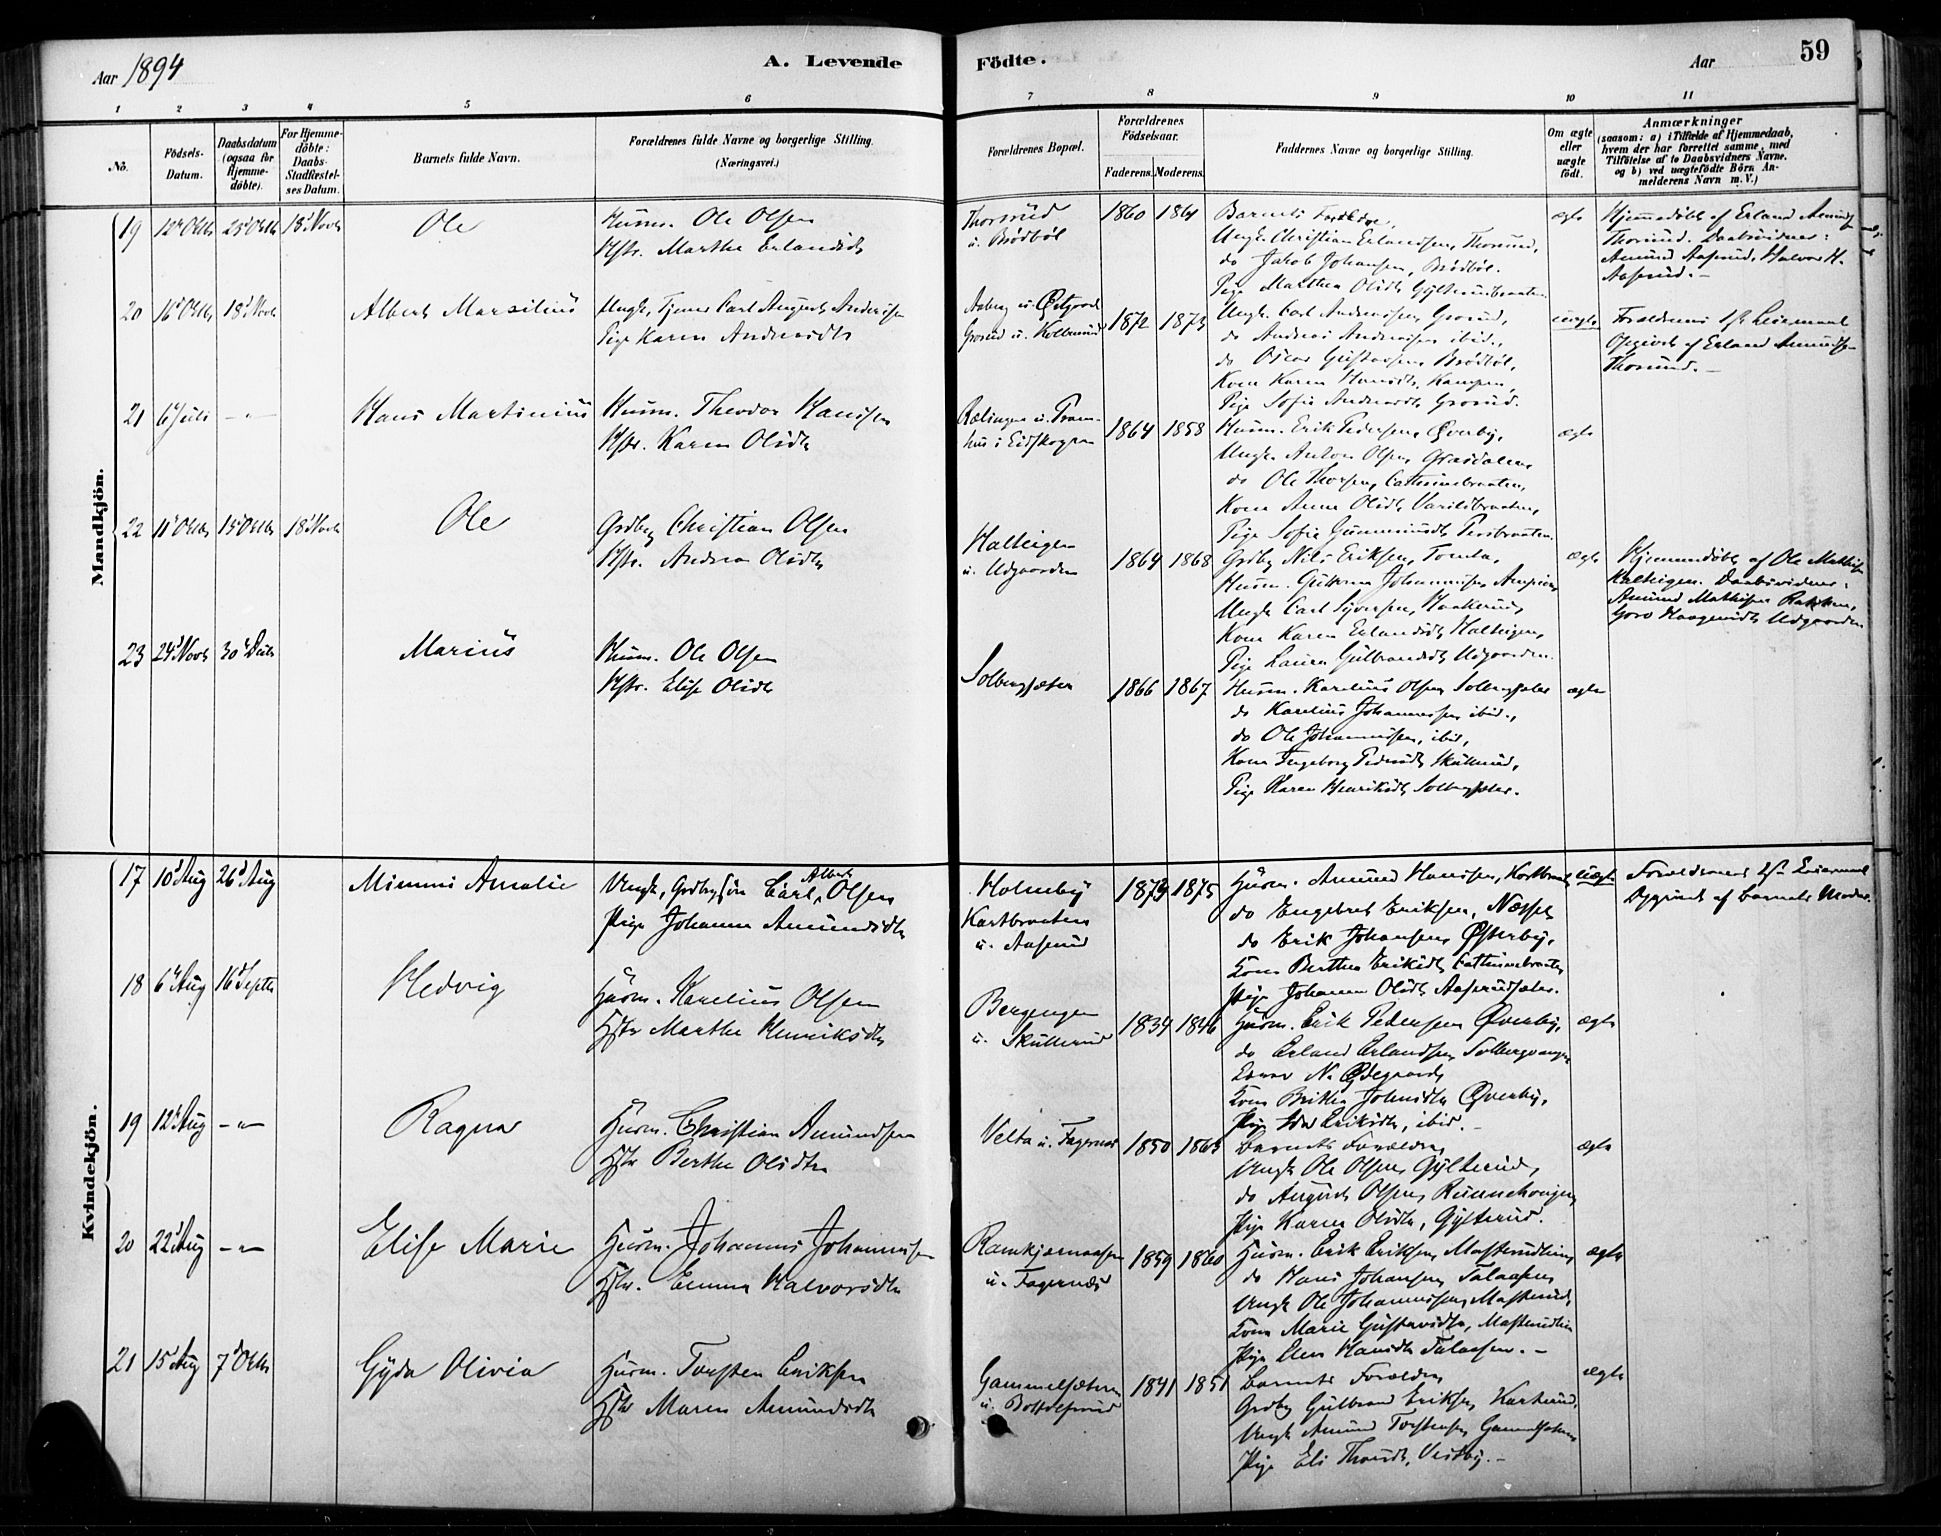 Aar 1894
A. Levende
Födte.
Aar
59
1 2 3 4 5 6 7 8 9 10 11
No.
Födsels-Datum.
Daabsdatum (ogsaa for Hjemme-döbte).
For Hjemme-döbte: Daabs-Stadfæstel-ses Datum.
Barnets fulde Navn.
Forældrenes fulde Navne og borgerlige Stilling. (Næringsvei.)
Forældrenes Bopæl.
Forældrenes Födselsaar.
Faderens. Moderens.
Faddernes Navne og borgerlige Stilling.
Om ægte eller uægte födt.
Anmærkninger
(saasom: a) i Tilfælde af Hjemmedaab, hvem der har forrettet samme, med Tilföielse af to Daabsvidners Navne. og b) ved uægtefödte Börn An-melderens Navn m. V.)
Mandkjön.
19
Ole
Husm. Ole Olsen
Hstr. Marthe Erlandsdt
Thorsrud
u. Brödböl
1860 1861
Barnets Forældre,
Ungk. Christian Erlandsen, Thorsrud,
do Jakob Johansen, Brödböl.
Pige Marthea Olsdt,
ægte
Hjemmedöbt af Erland
Thorsrud. Daabsvidner:
Amund Aasrud, Halvor H.
Aasrud. -
20 16d Oktb 18d Novb
Albert Marsilius
Ungk, Tjener Carl August Andersen
Pige Karen Andersdt
1872 1873
Ungk. Carl Andersen, Grosrud,
do Andreas Andersen ibid.,
do Oscar Gustavsen Brödböl,
Kone Karen Hansdt, Kampen,
Pige Sofie Andersdt, Grosrud.
uægte
Forældrenes 1ste Leiermaal
Opgivet af Erland Amunds.
Thorsrud. -
21 6d Juli - " -
Hans Martinius
Husm. Theodor Hansen
Hstr. Karen Olsdt
hus i Eidskogen
1864 1858
Husm. Erik Pedersen, Överby,
Ungk. Anton Olsen,
do Ole Thorsen, Cathrinebraaten,
Kone Anne Olsdt,
Pige Sofie Gunmundsdt
ægte
22 11d Oktb 15d Oktb 18d Novb
Ole
Grdbr Christian Olsen
Hstr. Andrea Olsdt
Kalteigen
u. Udgaarden
1864 1868
Grdbr Nils Eriksen, Tomta,
Husm. Johannesen,
Ungk. Carl Syversen, Haakerud,
Kone Karen Erlandsdt, Kalteigen,
Pige Laura Gulbrandsdt Udgaarden.
ægte
Hjemmedöbt af Ole Mathis.
Kalteigen. Daabsvidner:
Amund Mathisen
Goro Haagensdt, Udgaarden
23 24d Novb 30d Decb
Marius
Husm. Ole Olsen
Hstr. Elise Olsdt
Solbergsæter
1866 1867
Husm. Karelius Olsen Solbergsæter
do Karelius Johannesen ibid.,
do Ole Johannesen, ibid,
Kone Ingeborg Pedersdt, Skullerud,
Pige Karen Henriksdt, Solbergsæter.
ægte
Kvindekjön.
17 10d Aug 26d Aug
Mimmi Amalie
Ungk, Grdbrsön Carl Albert Olsen
Pige Johanne Amundsdt
Holmby
Kartbraaten
u. Aasrud
1874 1875
Husm. Amund Hansen, Kartbraat
do Engebret Eriksen, Næsset
do Erik Johansen Österby,
Kone Berthea Eriksdt, Cathrinebraaten
Pige Johanne Olsdt Aasrudsæter.
uægte
Forældrenes 1ste Leiermaal
Opgivet af barnets Moder.
18 6d Aug 16d Septb
Hedvig
Husm. Karelius Olsen
Hstr Marthe Henriksdt
Bergengen
u. Skullerud
1834 1846
Husm. Erik Pedersen Överby,
do Erland Erlandsen Solbergvangen
N. Ödegaard,
Kone Brithe Johnsdt, Överby,
Pige Eriksdt, ibid. -
ægte
19 12d Aug - " -
Ragna
Husm. Christian Amundsen
Hstr Berthe Olsdt
Velta u. Fagernæs
1850 1863
Barnets Forældre
Ungk Ole Olsen, Gylterud,
do August Olsen,
Pige Karen Olsdt, Gylterud.
ægte
20 22d Aug - " -
Elise Marie
Husm. Johannes Johannesen
Hstr. Emma Halvorsdt
Ramkjærnaasen
u. Fagernæs
1859 1860
Husm. Erik Eriksen, Masterudlien,
do Hans Johansen, Talaasen
Ungk Ole Johannesen, Masterud,
Kone Marie Gustavsdt, Masterudlien
Pige Elen Hansdt Talaasen. -
ægte
21 15d Aug 7d Oktb
Gyda Olivia
Husm. Torsten Eriksen
Hstr Maren Amundsdt
Gammelsæteren
1841 1851
Barnets Forældre
Grdbr Gulbrand Eriksen, Karterud,
Ungk Amund Torstensen, Gammelsæteren
Pige Eli Thorsdt, Vestby. -
ægte